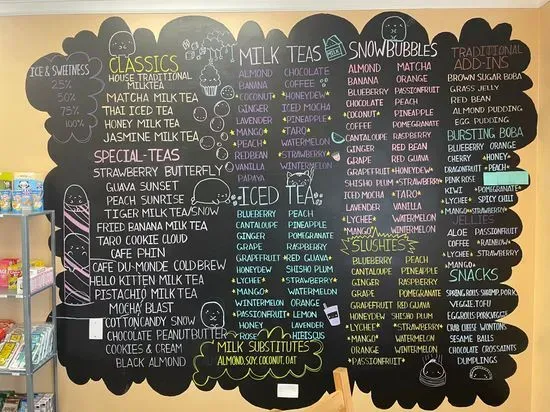 ICE & SWEETNESS
25%
50%
75%
100%
CLASSICS
HOUSE TRADITIONAL
MILKTEA
MATCHA MILK TEA
THAI ICED TEA
HONEY MILK TEA
JASMINE MILK TEA
SPECIAL-TEAS
STRAWBERRY BUTTERFLY
GUAVA SUNSET
PEACH SUNRISE
TIGER MILK TEA/SNOW
FRIED BANANA MILK TEA
TARO COOKIE CLOUD
CAFE PHIN
CAFE DU-MONDE COLD BREW
HELLO KITTEN MILK TEA
PISTACHIO MILK TEA
MOCHA BLAST
COTTON CANDY SNOW
CHOCOLATE PEANUTBUTTER
COOKIES & CREAM
BLACK ALMOND
MILK TEAS
ALMOND CHOCOLATE
BANANA COFFEE
COCONUT HONEYDEW
GINGER ICED MOCHA
LAVENDER TARO
MANGO WATERMELON
PEACH STRAWBERRY
REDBEAN WINTERMELON
VANILLA
PAPAYA
ICED TEA
BLUEBERRY PEACH
CANTALOUPE PINEAPPLE
GINGER POMEGRANATE
GRAPE RASPBERRY
GRAPEFRUIT RED GUAVA
HONEYDEW SHISHO PLUM
LYCHEE STRAWBERRY
MANGO WATERMELON
WINTERMELON ORANGE
PASSIONFRUIT LEMON
HONEY LAVENDER
ROSE HIBISCUS
MILK SUBSTITUTES
ALMOND, SOY, COCONUT, OAT
SNOWBUBBLES
ALMOND MATCHA
BANANA ORANGE
BLUEBERRY PASSIONFRUIT
CHOCOLATE PEACH
COCONUT PINEAPPLE
COFFEE POMEGRANATE
CANTALOUPE RASPBERRY
GINGER RED BEAN
GRAPE RED GUAVA
GRAPEFRUIT HONEYDEW
SHISHO PLUM STRAWBERRY
ICED MOCHA TARO
LAVENDER VANILLA
LYCHEE WATERMELON
MANGO WINTERMELON
SLUSHIES
BLUEBERRY PEACH
CANTALOUPE PINEAPPLE
GINGER RASPBERRY
GRAPE POMEGRANATE
GRAPEFRUIT RED GUAVA
HONEYDEW SHISHO PLUM
LYCHEE STRAWBERRY
MANGO WATERMELON
ORANGE WINTERMELON
PASSIONFRUIT
TRADITIONAL
ADD-INS
BROWN SUGAR BOBA
GRASS JELLY
RED BEAN
ALMOND PUDDING
EGG PUDDING
BURSTING BOBA
BLUEBERRY ORANGE
CHERRY HONEY
DRAGONFRUIT PEACH
PINK ROSE
KIWI POMEGRANATE
LYCHEE SPICY CHILI
MANGO STRAWBERRY
JELLIES
ALOE PASSION
COFFEE RAINBOW
LYCHEE STRAWBERRY
MANGO
SNACKS
SPRING ROLLS SHRIMP, PORK
VEGGIE, TOFU
EGGROLLS PORK VEGGIE
CRAB CHEESE WONTONS
SESAME BALLS
CHOCOLATE CROISSANTS
DUMPLINGS